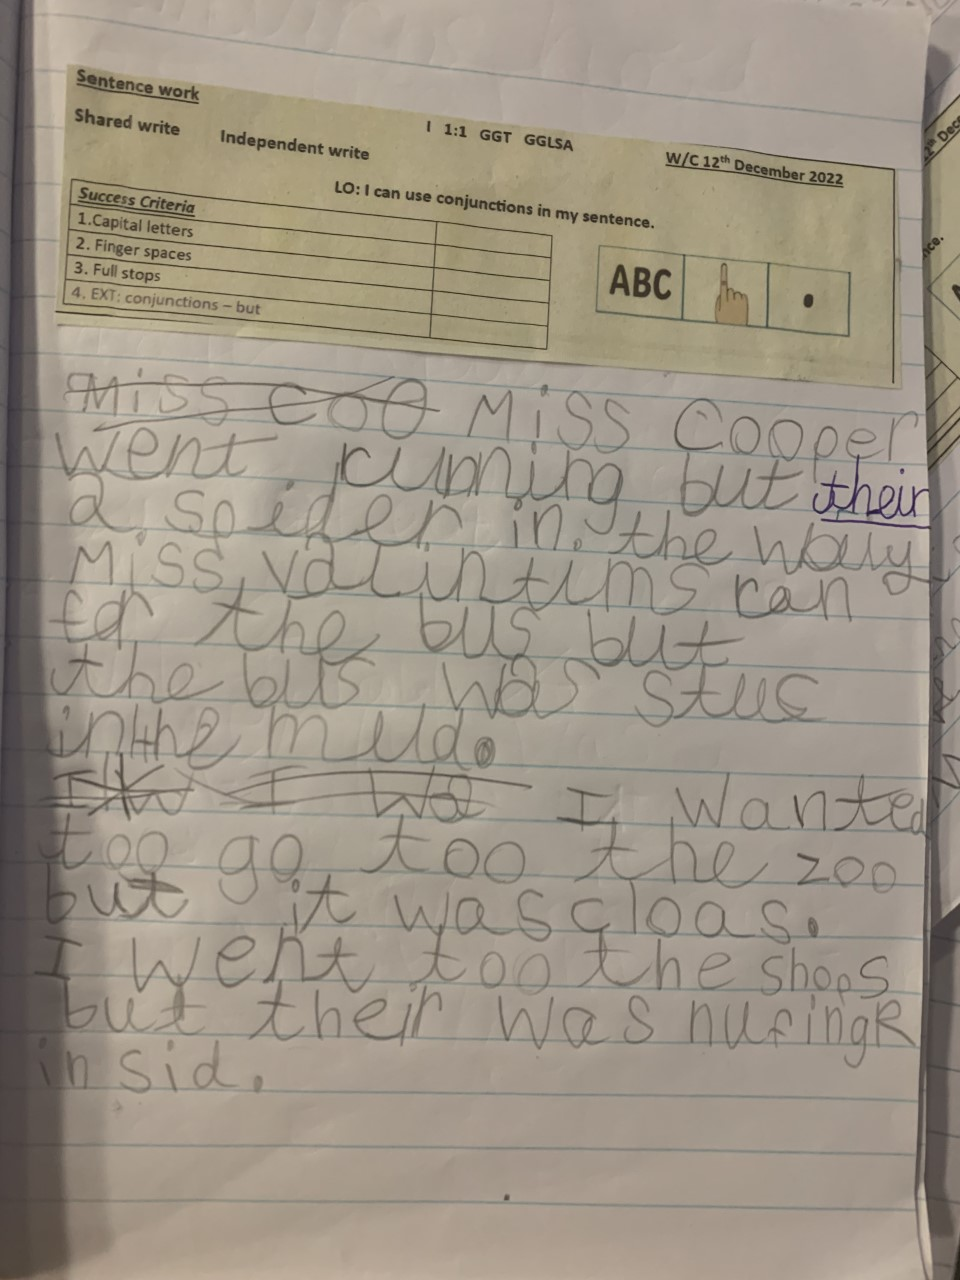 Sentence work
I 1:1 GGT GGLSA
Shared write Independent write W/C 12th December 2022
LO: I can use conjunctions in my sentence.
Success Criteria
1.Capital letters
2. Finger spaces
3. Full stops
4. EXT: conjunctions – but
ABC
Miss Coo Miss Cooper
went running but their
a spider in. the way
Miss valintims ran
for the bus but
the bus was stuc
in the mud.
I wa I wanted
too go too the zoo
but it was cloas.
I went too the shops
but their was nufingk
in sid.